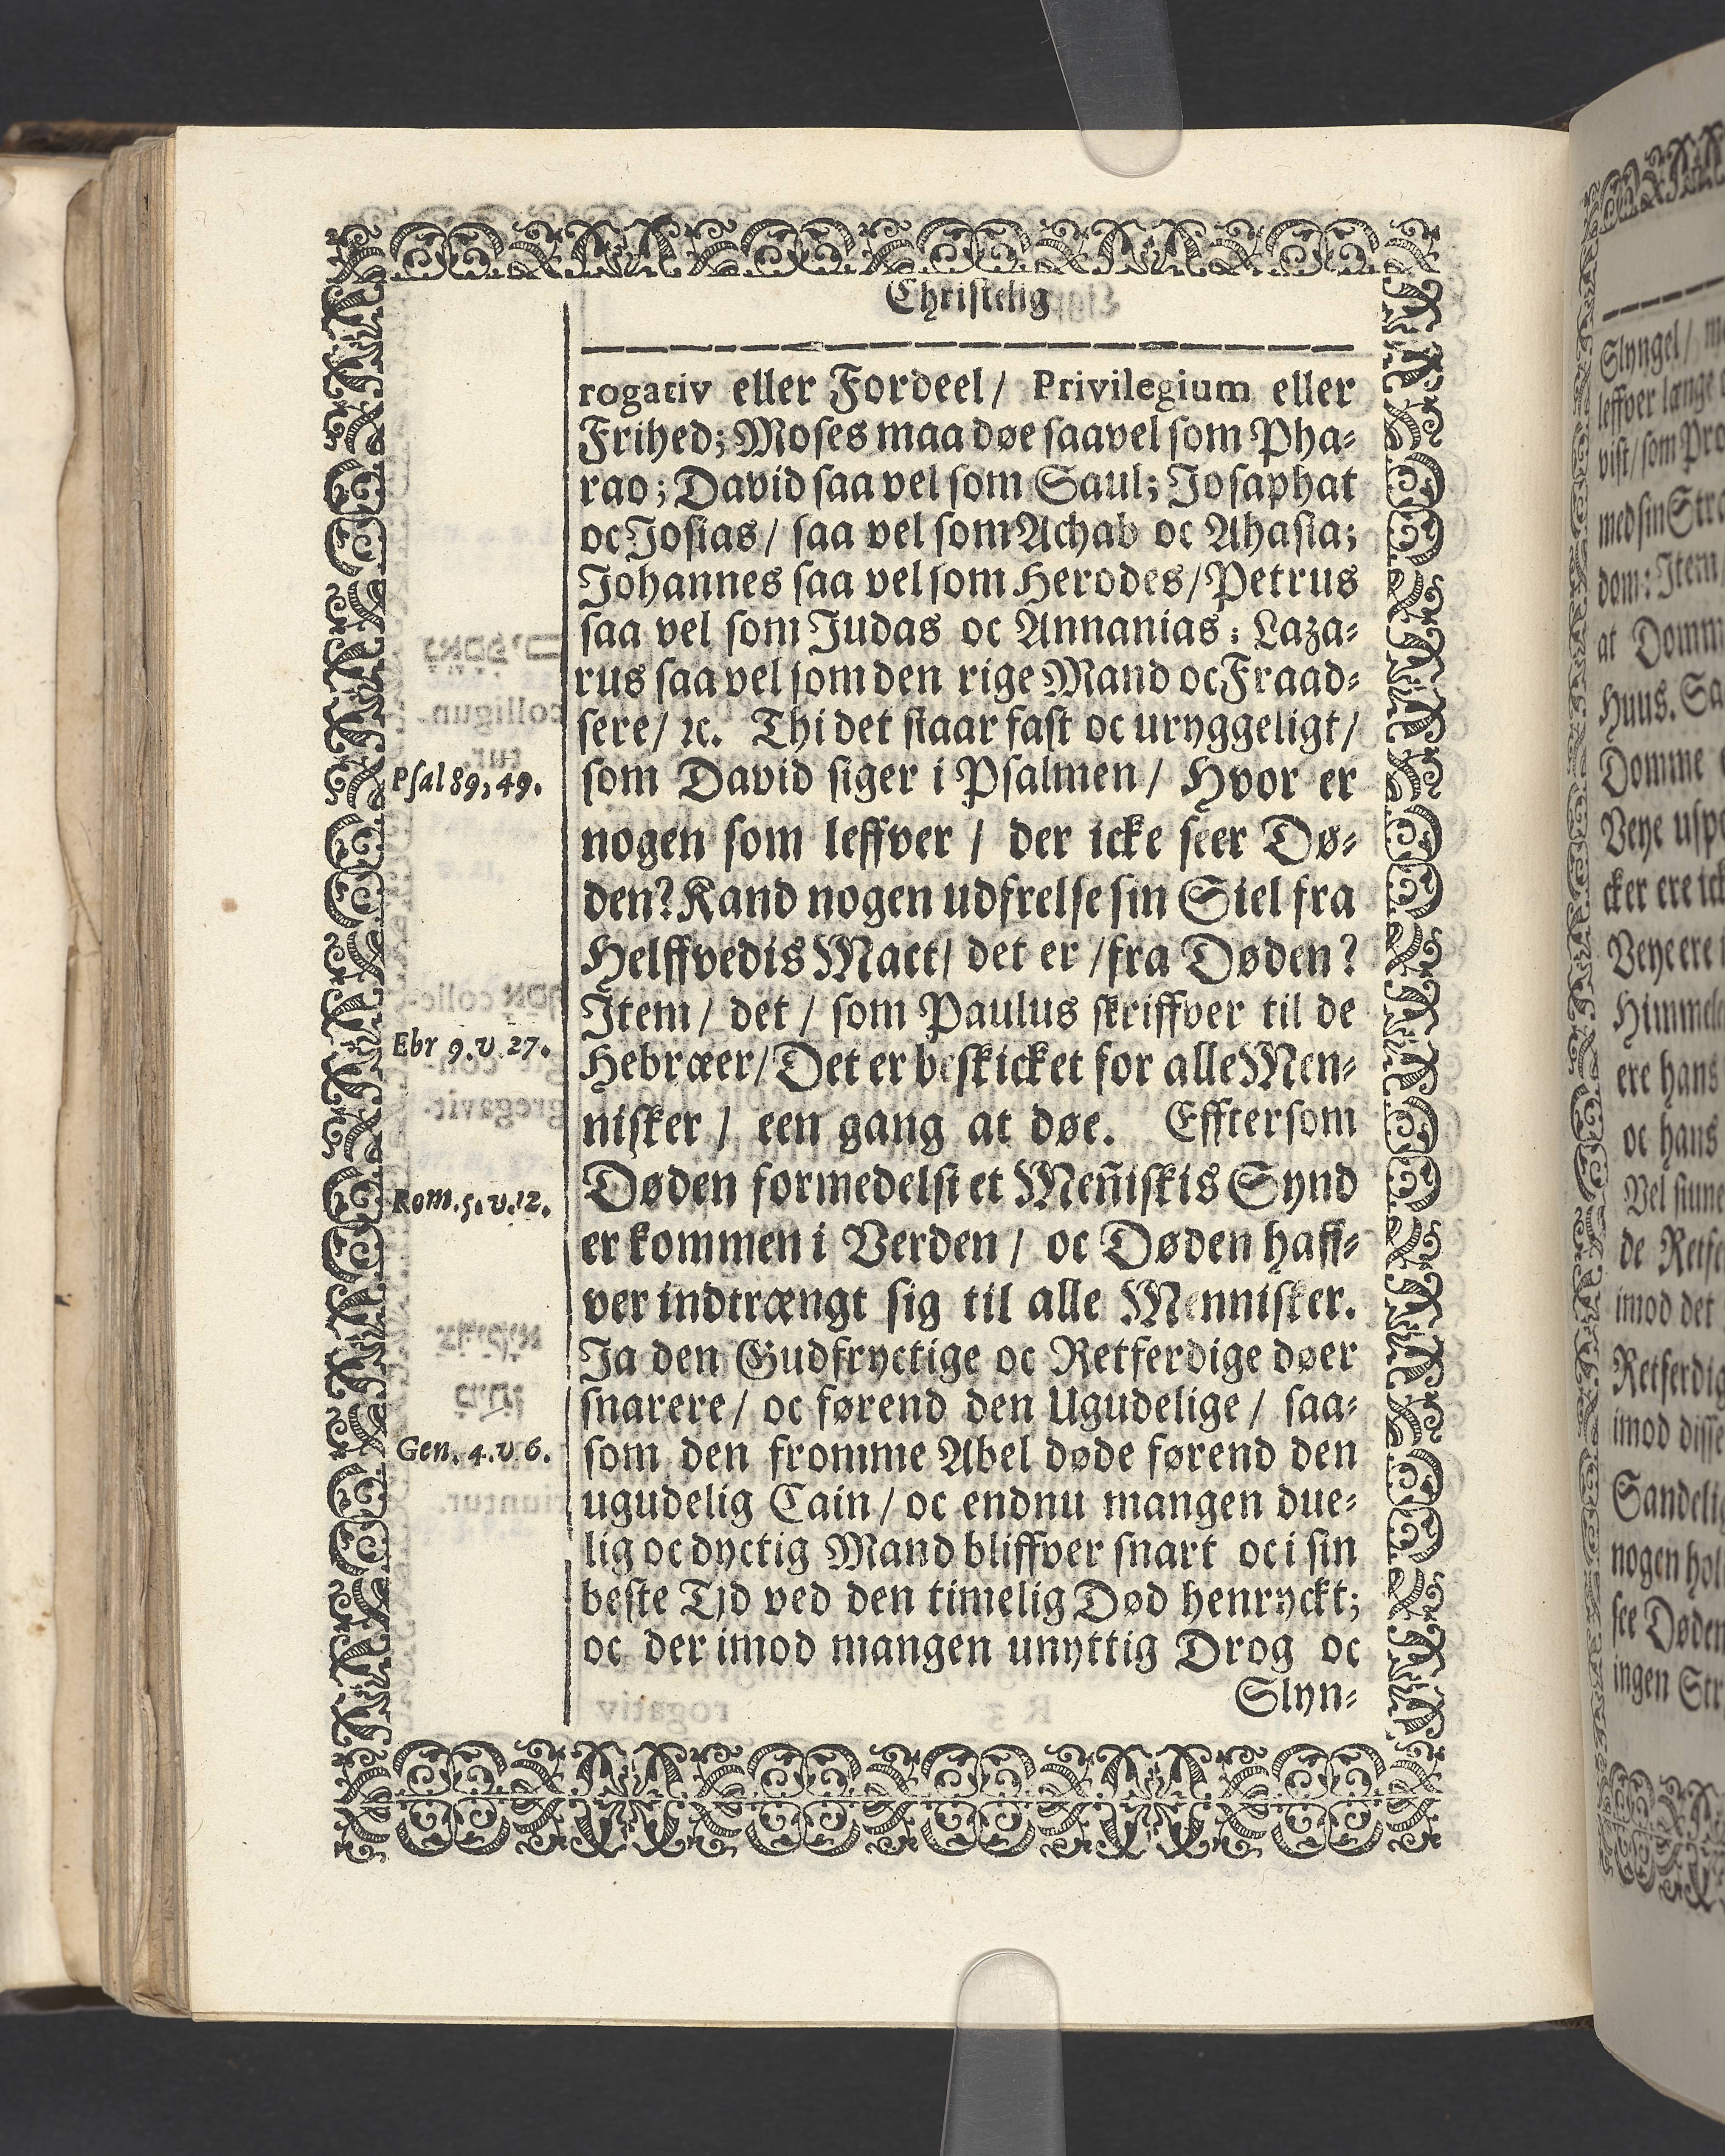 Christelig
rogativ eller Fordeel/ Privilegium eller
Frihed; Moses maa døe saavel som Pha-
rao; David saa vel som Saul; Josaphat
oc Josias/ saa vel som Achab oc Ahasia;
Johannes saa vel som Herodes/ Petrus
saa vel som Judas oc Annanias; Laza-
rus saa vel som den rige Mand oc Fraad-
sere/ ꝛc. Thi det staar fast oc uryggeligt/
som David siger i Psalmen/ Hvor er
Psal 89, 49.
nogen som leffver / der icke seer Dø-
den? Kand nogen udfrelse sin Siel fra
Helffvedis Mact/ det er /fra Døden?
Item/ det / som Paulus skriffver til de
Hebræer/ Det er beskicket for alle Men-
Ebr 9. v 27.
nisker / een gang at døe. Efftersom
Døden formedelst et Meñiskis Synd
Rom. 5. v. 12.
er kommen i Verden / oc Døden haff-
ver indtrængt sig til alle Mennisker.
Ja den Gudfryctige oc Retferdige døer
snarere/ oc førend den Ugudelige / saa-
som den fromme Abel døde førend den
Gen. 4. v 6.
ugudelig Cain/ oc endnu mangen due-
lig oc dyctig Mand bliffver snart oc i sin
beste Tjd ved den timelig Død henryckt;
oc der imod mangen unyttig Drog oc
Slyn-
Slyngel/
leffver længe
vist/ som
med sin
dom: Item
at
Huus. Sa
Domme
Veye
cker ere
Veye ere
Himmele
ere hans
oc hans
Vel
de
imod det
Retferdig
imod disse
Sandelig
nogen
see Døden
ingen